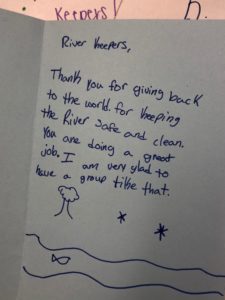 Keepers!
River Keepers,
Thank you for giving back
to the world. for keeping
the River safe and clean.
You are doing a great
job. I am very glad to
have a group like that.